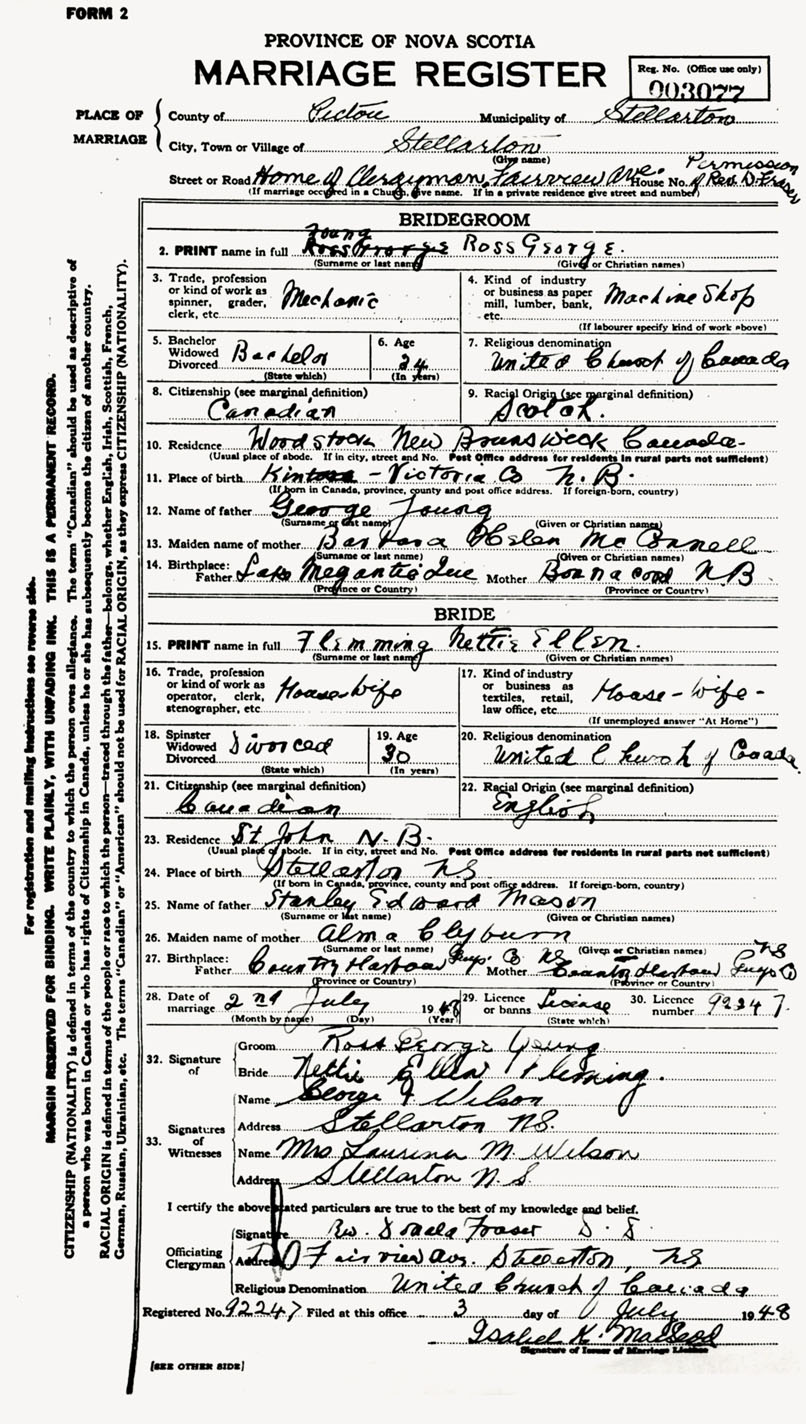 FORM 2
PROVINCE OF NOVA SCOTIA
MARRIAGE REGISTER
Reg. No. (Office use only)
003077
PLACE OF MARRIAGE
County of Pictou Municipality of Stellarton
City, Town or Village of Stellarton
(Give name)
Street or Road Home of Clergyman, Fairview Ave. House No. Permission of Rev. D. Fraser
(If marriage occurred in a Church, give name. If in a private residence give street and number)
BRIDEGROOM
2. PRINT name in full Young Ross George.
(Surname or last name) (Given or Christian names)
3. Trade, profession or kind of work as spinner, grader, clerk, etc. Mechanic
4. Kind of industry or business as paper mill, lumber, bank, etc. Machine Shop
(If labourer specify kind of work above)
5. Bachelor Widowed Divorced Bachelor
(State which)
6. Age 24
(In years)
7. Religious denomination United Church of Canada
8. Citizenship (see marginal definition) Canadian
9. Racial Origin (see marginal definition) Scotch.
10. Residence Woodstock New Brunswick Canada
(Usual place of abode. If in city, street and No. Post Office address for residents in rural parts not sufficient)
11. Place of birth Kintore - Victoria Co N.B.
(If born in Canada, province, county and post office address. If foreign-born, country)
12. Name of father George Young
(Surname or last name) (Given or Christian names)
13. Maiden name of mother Barbara Helen McConnell
(Surname or last name) (Given or Christian names)
14. Birthplace: Father Lake Megantic Que Mother Bon Accord N B
(Province or Country) (Province or Country)
BRIDE
15. PRINT name in full Flemming Nettie Ellen.
(Surname or last name) (Given or Christian names)
16. Trade, profession or kind of work as operator, clerk, stenographer, etc. House wife
17. Kind of industry or business as textiles, retail, law office, etc. House-wife-
(If unemployed answer "At Home")
18. Spinster Widowed Divorced Divorced
(State which)
19. Age 30
(In years)
20. Religious denomination United Church of Canada
21. Citizenship (see marginal definition) Canadian
22. Racial Origin (see marginal definition) English
23. Residence St John N.B.
(Usual place of abode. If in city, street and No. Post Office address for residents in rural parts not sufficient)
24. Place of birth Stellarton NS
(If born in Canada, province, county and post office address. If foreign-born, country)
25. Name of father Stanley Edward Mason
(Surname or last name) (Given or Christian names)
26. Maiden name of mother Alma Clyburn
(Surname or last name) (Given or Christian names)
27. Birthplace: Father Country Harbour Guys Co NS Mother Country Harbour Guys Co NS
(Province or Country) (Province or Country)
28. Date of marriage 2nd July 1948
(Month by name) (Day) (Year)
29. Licence or banns License
(State which)
30. Licence number 92247.
32. Signature of
Groom Ross George Young
Bride Nettie Ellen Fleming.
33. Signatures of Witnesses
Name George Wilson
Address Stellarton N.S.
Name Mrs Laurina M. Wilson
Address Stellarton N.S.
I certify the above stated particulars are true to the best of my knowledge and belief.
Officiating Clergyman
Signature Rev. Donald Fraser
Address Fairview Ave. Stellarton, NS
Religious Denomination United Church of Canada
Registered No. 92247 Filed at this office 3 day of July 1948
Isabel K. MacLeod
Signature of Issuer of Marriage Licence
[SEE OTHER SIDE]
For registration and mailing instructions see reverse side.
MARGIN RESERVED FOR BINDING. WRITE PLAINLY, WITH UNFADING INK. THIS IS A PERMANENT RECORD.
CITIZENSHIP (NATIONALITY) is defined in terms of the country to which the person owes allegiance. The term "Canadian" should be used as descriptive of
a person who was born in Canada or who has rights of Citizenship in Canada, unless he or she has subsequently become the citizen of another country.
RACIAL ORIGIN is defined in terms of the people or race to which the person—traced through the father—belongs, whether English, Irish, Scottish, French,
German, Russian, Ukrainian, etc. The terms "Canadian" or "American" should not be used for RACIAL ORIGIN, as they express CITIZENSHIP (NATIONALITY).